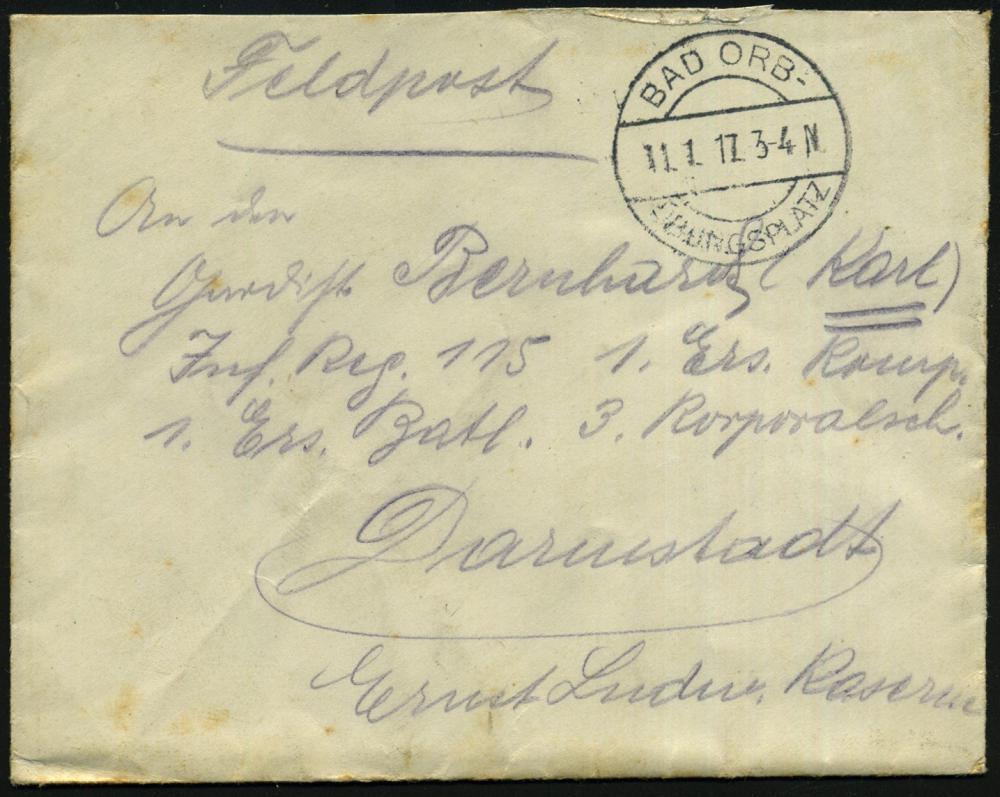 Feldpost
BAD ORB-
11.1.17. 3-4 N
ÜBUNGSPLATZ
An den
Gardist Bernhardt (Karl)
Inf. Reg. 115 1. Ers. Komp.
1. Ers. Batl. 3. Korporalsch.
Darmstadt
Ernst Ludw. Kaserne